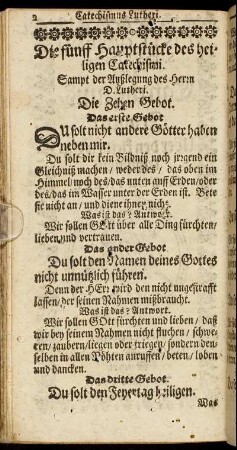 2 Catechismus Lutheri.
Die fünff Hauptstücke des hei-
ligen Catechismi.
Sampt der Außlegung des Herrn
D. Lutheri.
Die Zehen Gebot.
Das erste Gebot
DU solt nicht andere Götter haben
neben mir.
Du solt dir kein Bildniß noch jrgend ein
Gleichniß machen / weder des / das oben im
Himmel / noch des / das unten auff Erden / oder
des / das im Wasser unter der Erden ist. Bete
sie nicht an / und diene ihnen nicht.
Was ist das? Antwort.
Wir sollen GOtt über alle Ding fürchten /
lieben und vertrauen.
Das ander Gebot
Du solt den Namen deines Gottes
nicht unnützlich führen.
Denn der HErr wird den nicht ungestrafft
lassen / der seinen Nahmen mißbraucht.
Was ist das? Antwort.
Wir sollen GOtt fürchten und lieben / daß
wir bey seinem Nahmen nicht fluchen / schwe-
ren / zaubern / liegen oder triegen / sondern den-
selben in allen Nöhten anruffen / beten / loben
und dancken.
Das dritte Gebot.
Du solt den Feyertag heiligen.
Was